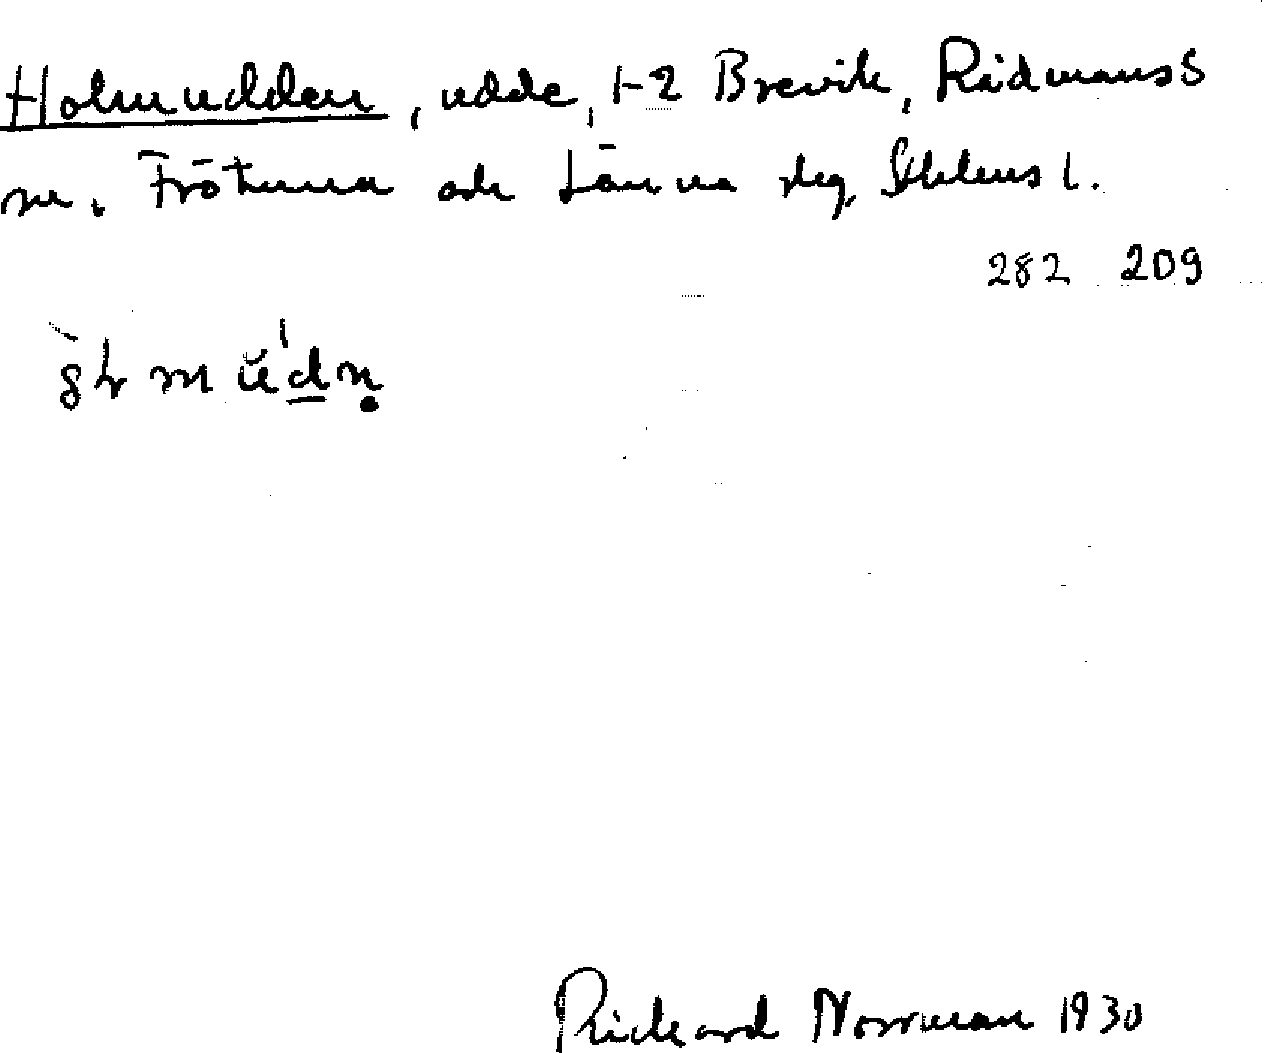 Holmudden, udde, 1-2 Brevik, Rådmansö
sn. Frötuna och Länna skg, Sthlms l.
282 209
Rickard Norrman 1930